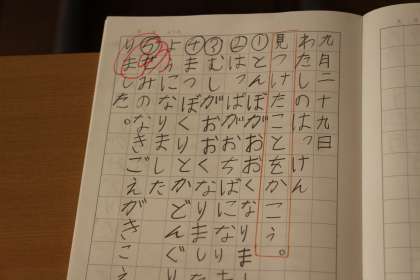 九月二十九日
わたしのはっけん
見つけたことをかこう。
①とんぼがおおくなりま
②はっぱがおちばになりまし
③むしがおおくなりまし
④まつぼっくりとかどんぐり
になりました
⑤せみのなきごえがきこえ
りました。